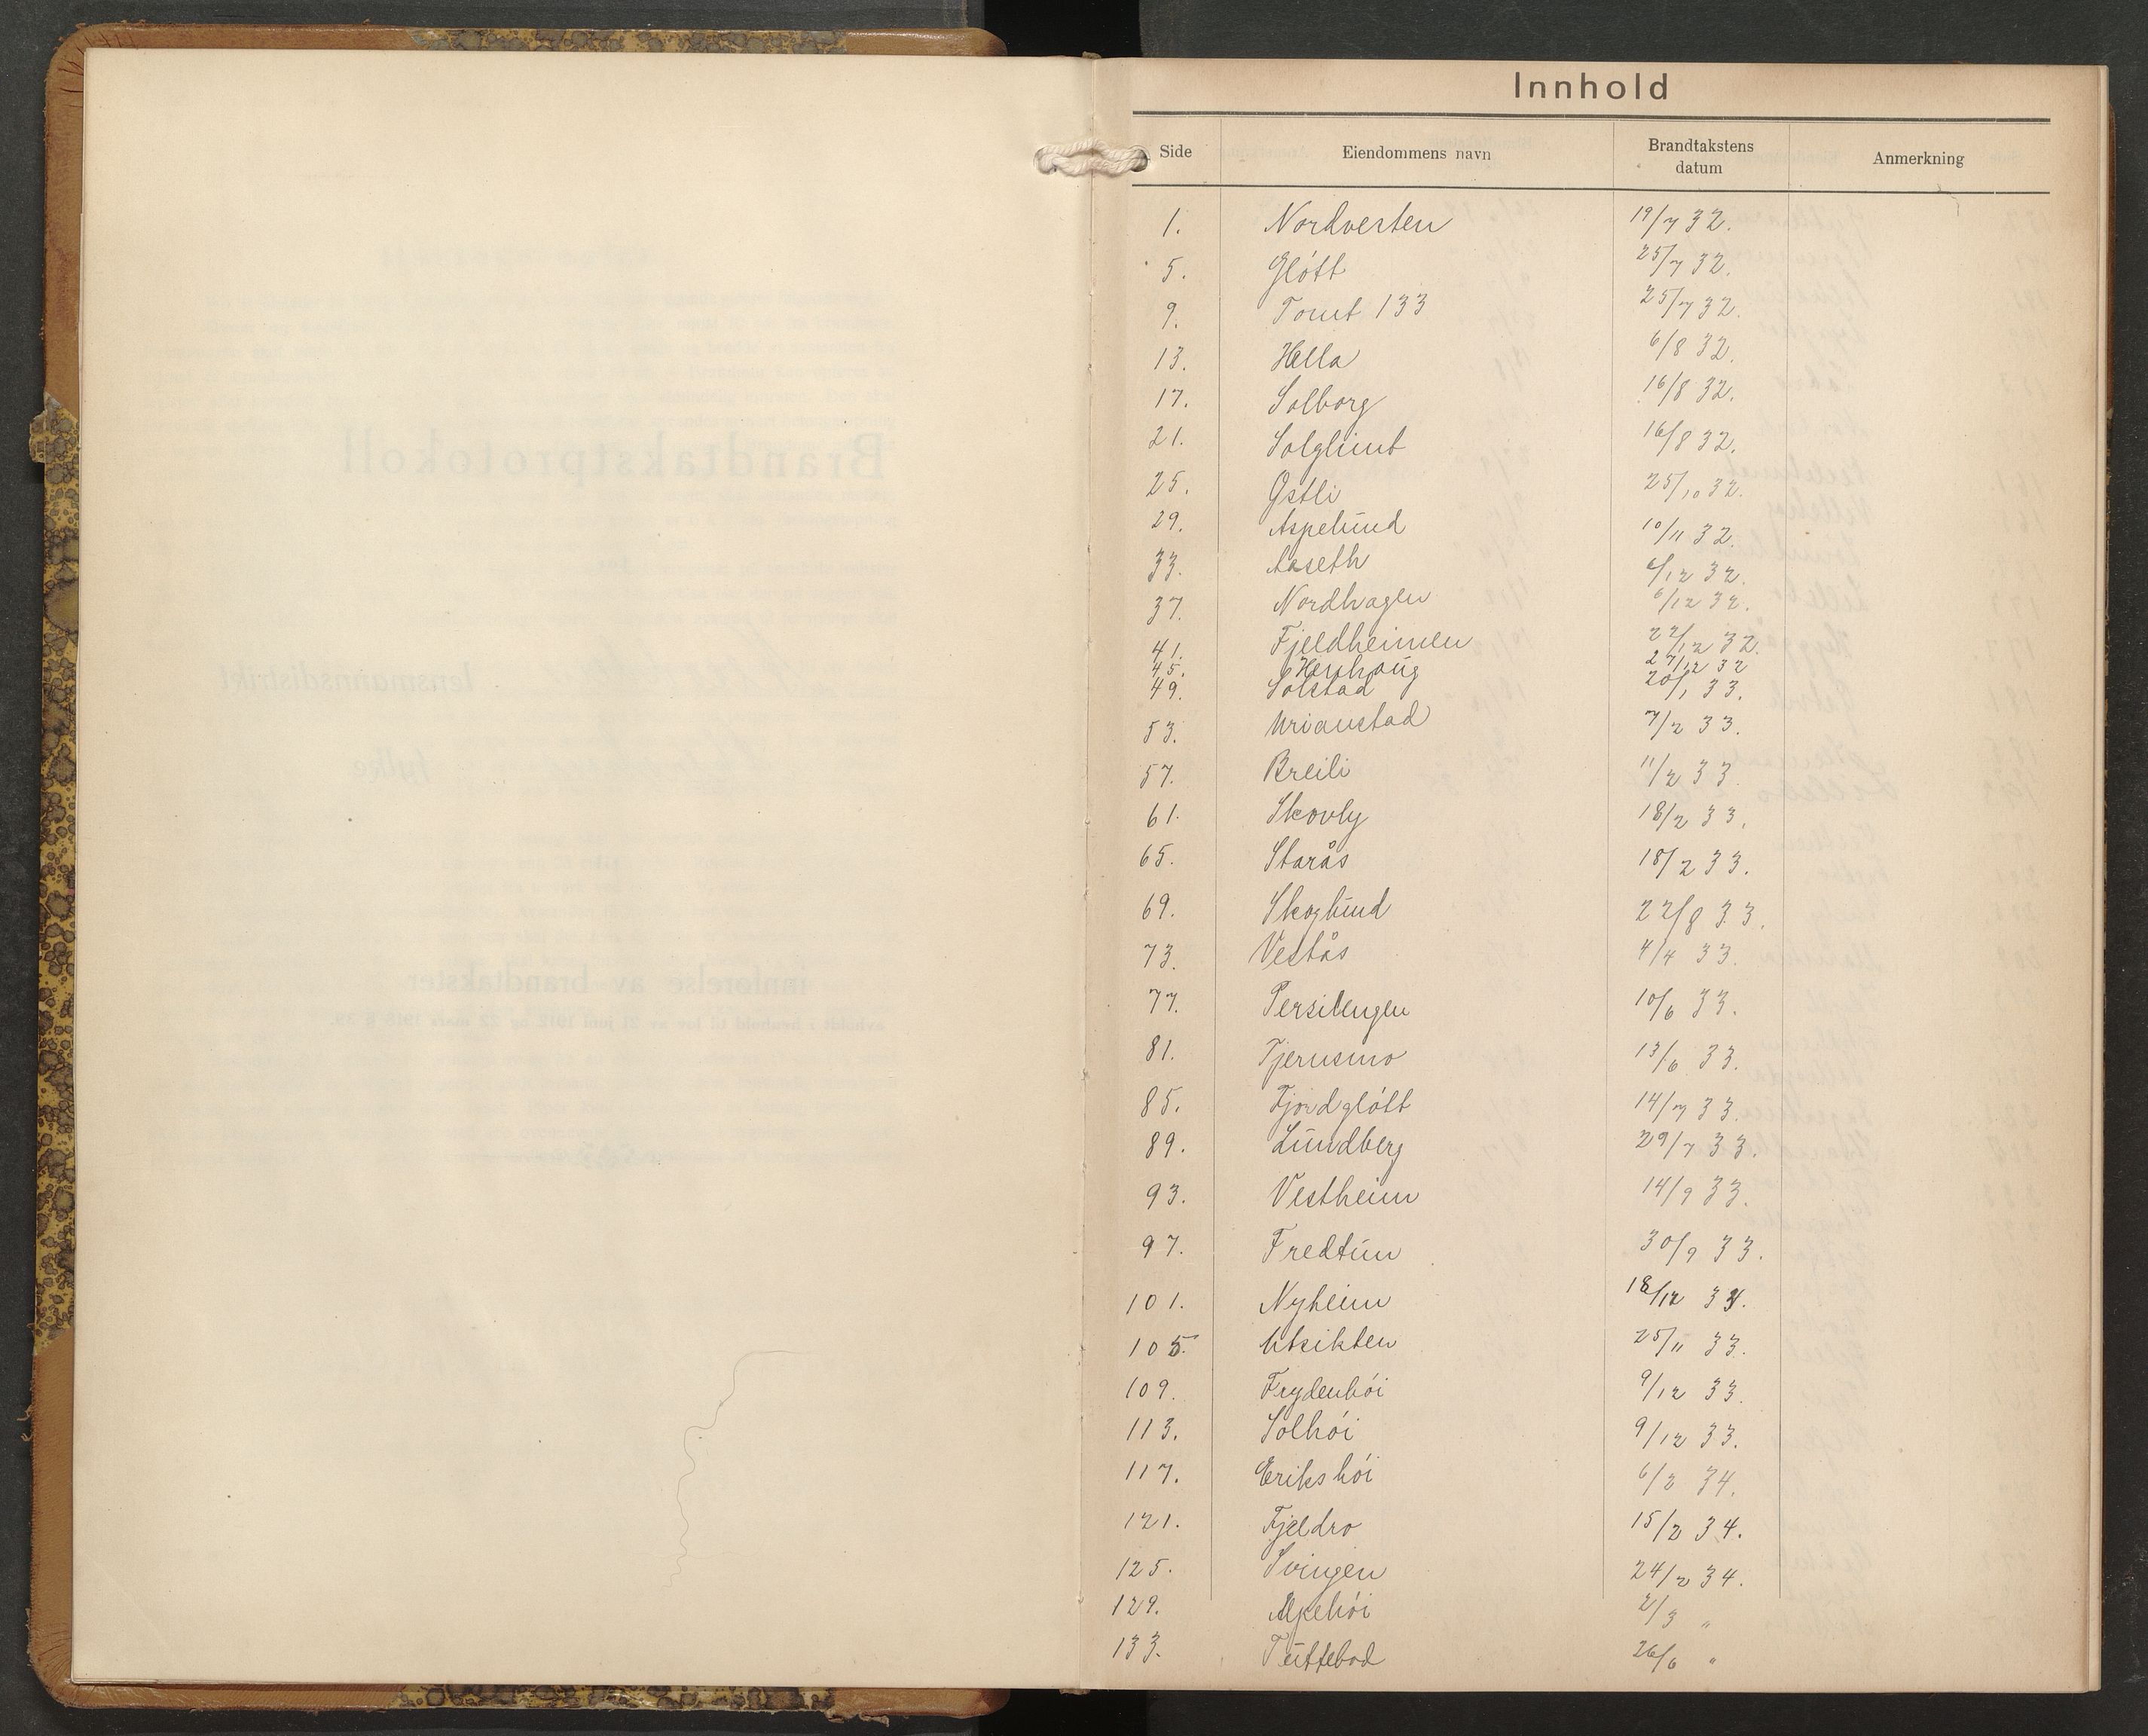 Innhold
Side Eiendommens navn Brandtakstens datum Anmerkning
1. Nordverten 19/7 32.
5. Glótt 25/7 32.
9. Tomt 133 25/7 32.
13. Hella 6/8 32.
17. Solborg 16/8 32.
21. Solglimt 16/8 32.
25. Østli 25/10 32.
29. Aspelund 10/11 32.
33. Aaseth 6/12 32.
37. Nordhagen 6/12 32.
41. Fjeldheimen 22/12 32.
45. Henhaug 27/12 32
49. Solstad 20/1 33.
53. Urianstad 7/2 33.
57. Breili 11/2 33
61. Skovly 18/2 33.
65. Starås 18/2 33.
69. Skoglund 22/8 33.
73. Vestås 4/4 33.
77. Persilengen 10/6 33.
81. Tjernsmo 13/6 33.
85. Fjordglótt 14/7 33.
89. Lundberg 29/7 33.
93. Vestheim 14/9 33.
97. Fredtun 30/9 33.
101. Nyheim 18/12
105. Utsikten 25/11 33.
109. Frydenhói 9/12 33.
113. Solhói 9/12 33.
117. Erikshói 6/2 34.
121. Fjeldro 15/2 34.
125. Svingen 24/2 34.
129. 2/3 "
133. Tuttebod 26/6 "